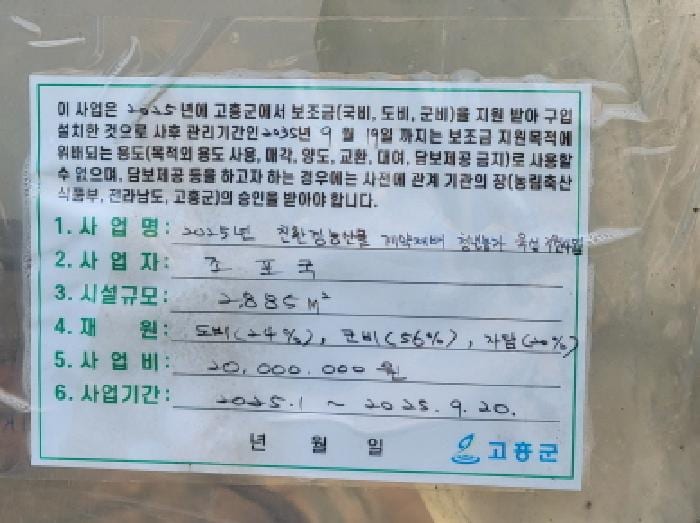 이 사업은 2025년에 고흥군에서 보조금(국비, 도비, 군비)을 지원 받아 구입
설치한 것으로 사후 관리기간인 2035년 9 월 19일 까지는 보조금 지원목적에
위배되는 용도(목적외 용도 사용, 매각, 양도, 교환, 대여, 담보제공 금지)로 사용할
수 없으며, 담보제공 등을 하고자 하는 경우에는 사전에 관계 기관의 장(농림축산
식품부, 전라남도, 고흥군)의 승인을 받아야 합니다.
1. 사 업 명: 2025년 친환경농산물 계약재배 청년농가 육성
2. 사 업 자: 조 포 국
3. 시설규모: 2,885 M²
4. 재 원: 도비(24%), 군비(56%), 자담(20%)
5. 사 업 비: 20,000,000원
6. 사업기간: 2025.1 ~ 2025.9.20.
년 월 일
고흥군